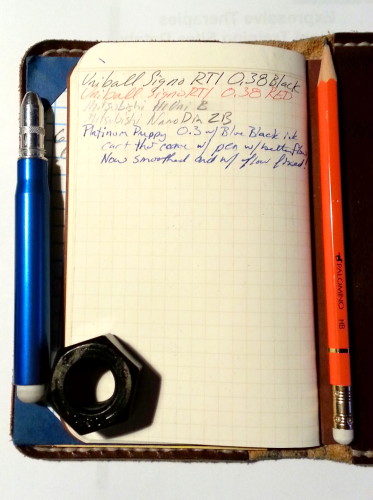 Expressive Therapies
Uniball Signo RT1 0.38 Black
Uniball Signo RT1 0.38 RED
Mitsubishi B
Mitsubishi NanoDia 2B
Platinum Preppy 0.3 w/ Blue Black ink
cart that came w/ pen w/ better flow
Now smoothed and w/ flow fixed!
PALOMINO HB